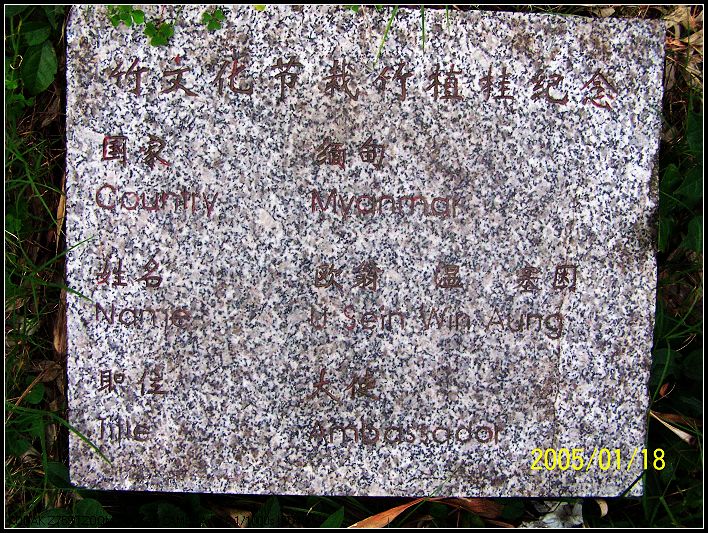 竹文化节栽竹植桂纪念
国家 缅甸
Country Myanmar
姓名 欧翁 温 塞因
Name U Sein Win Aung
职位 大使
Title Ambassador
2005/01/18